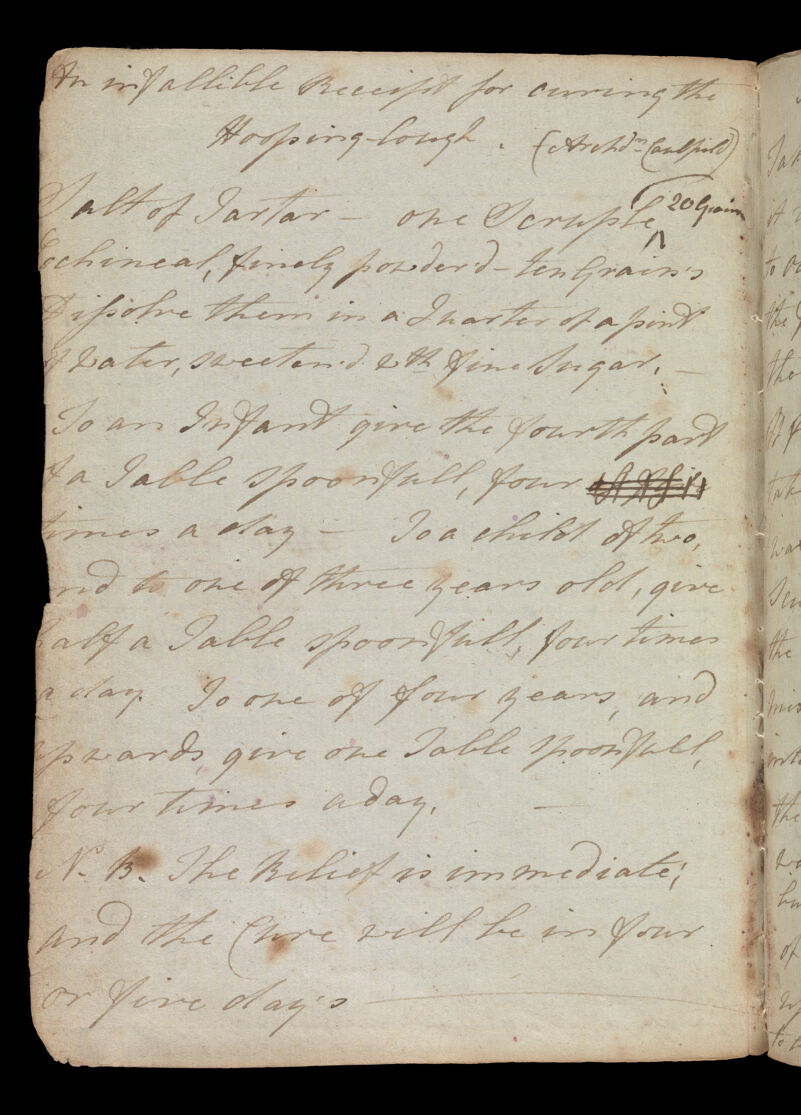 An infallible Receipt for curing the
Hooping-Cough. (Archd:n Caulfield)
Salt of Tartar — one Scruple ^ (20 Grains
Cochineal, finely powder'd – ten Grain's
Dissolve them in a Quarter of a pint
of Water, sweeten'd wth fine Sugar. —
To an Infant give the fourth part
of a Table spoonfull, four
times a day — To a child of two,
and to one of three years old, give
half a Table spoonfull, four times
a day. To one of four years, and
upwards, give one Table spoonfull,
four times a day. —
N. B. The Relief is immediate;
and the Cure will be in four
or five day's —